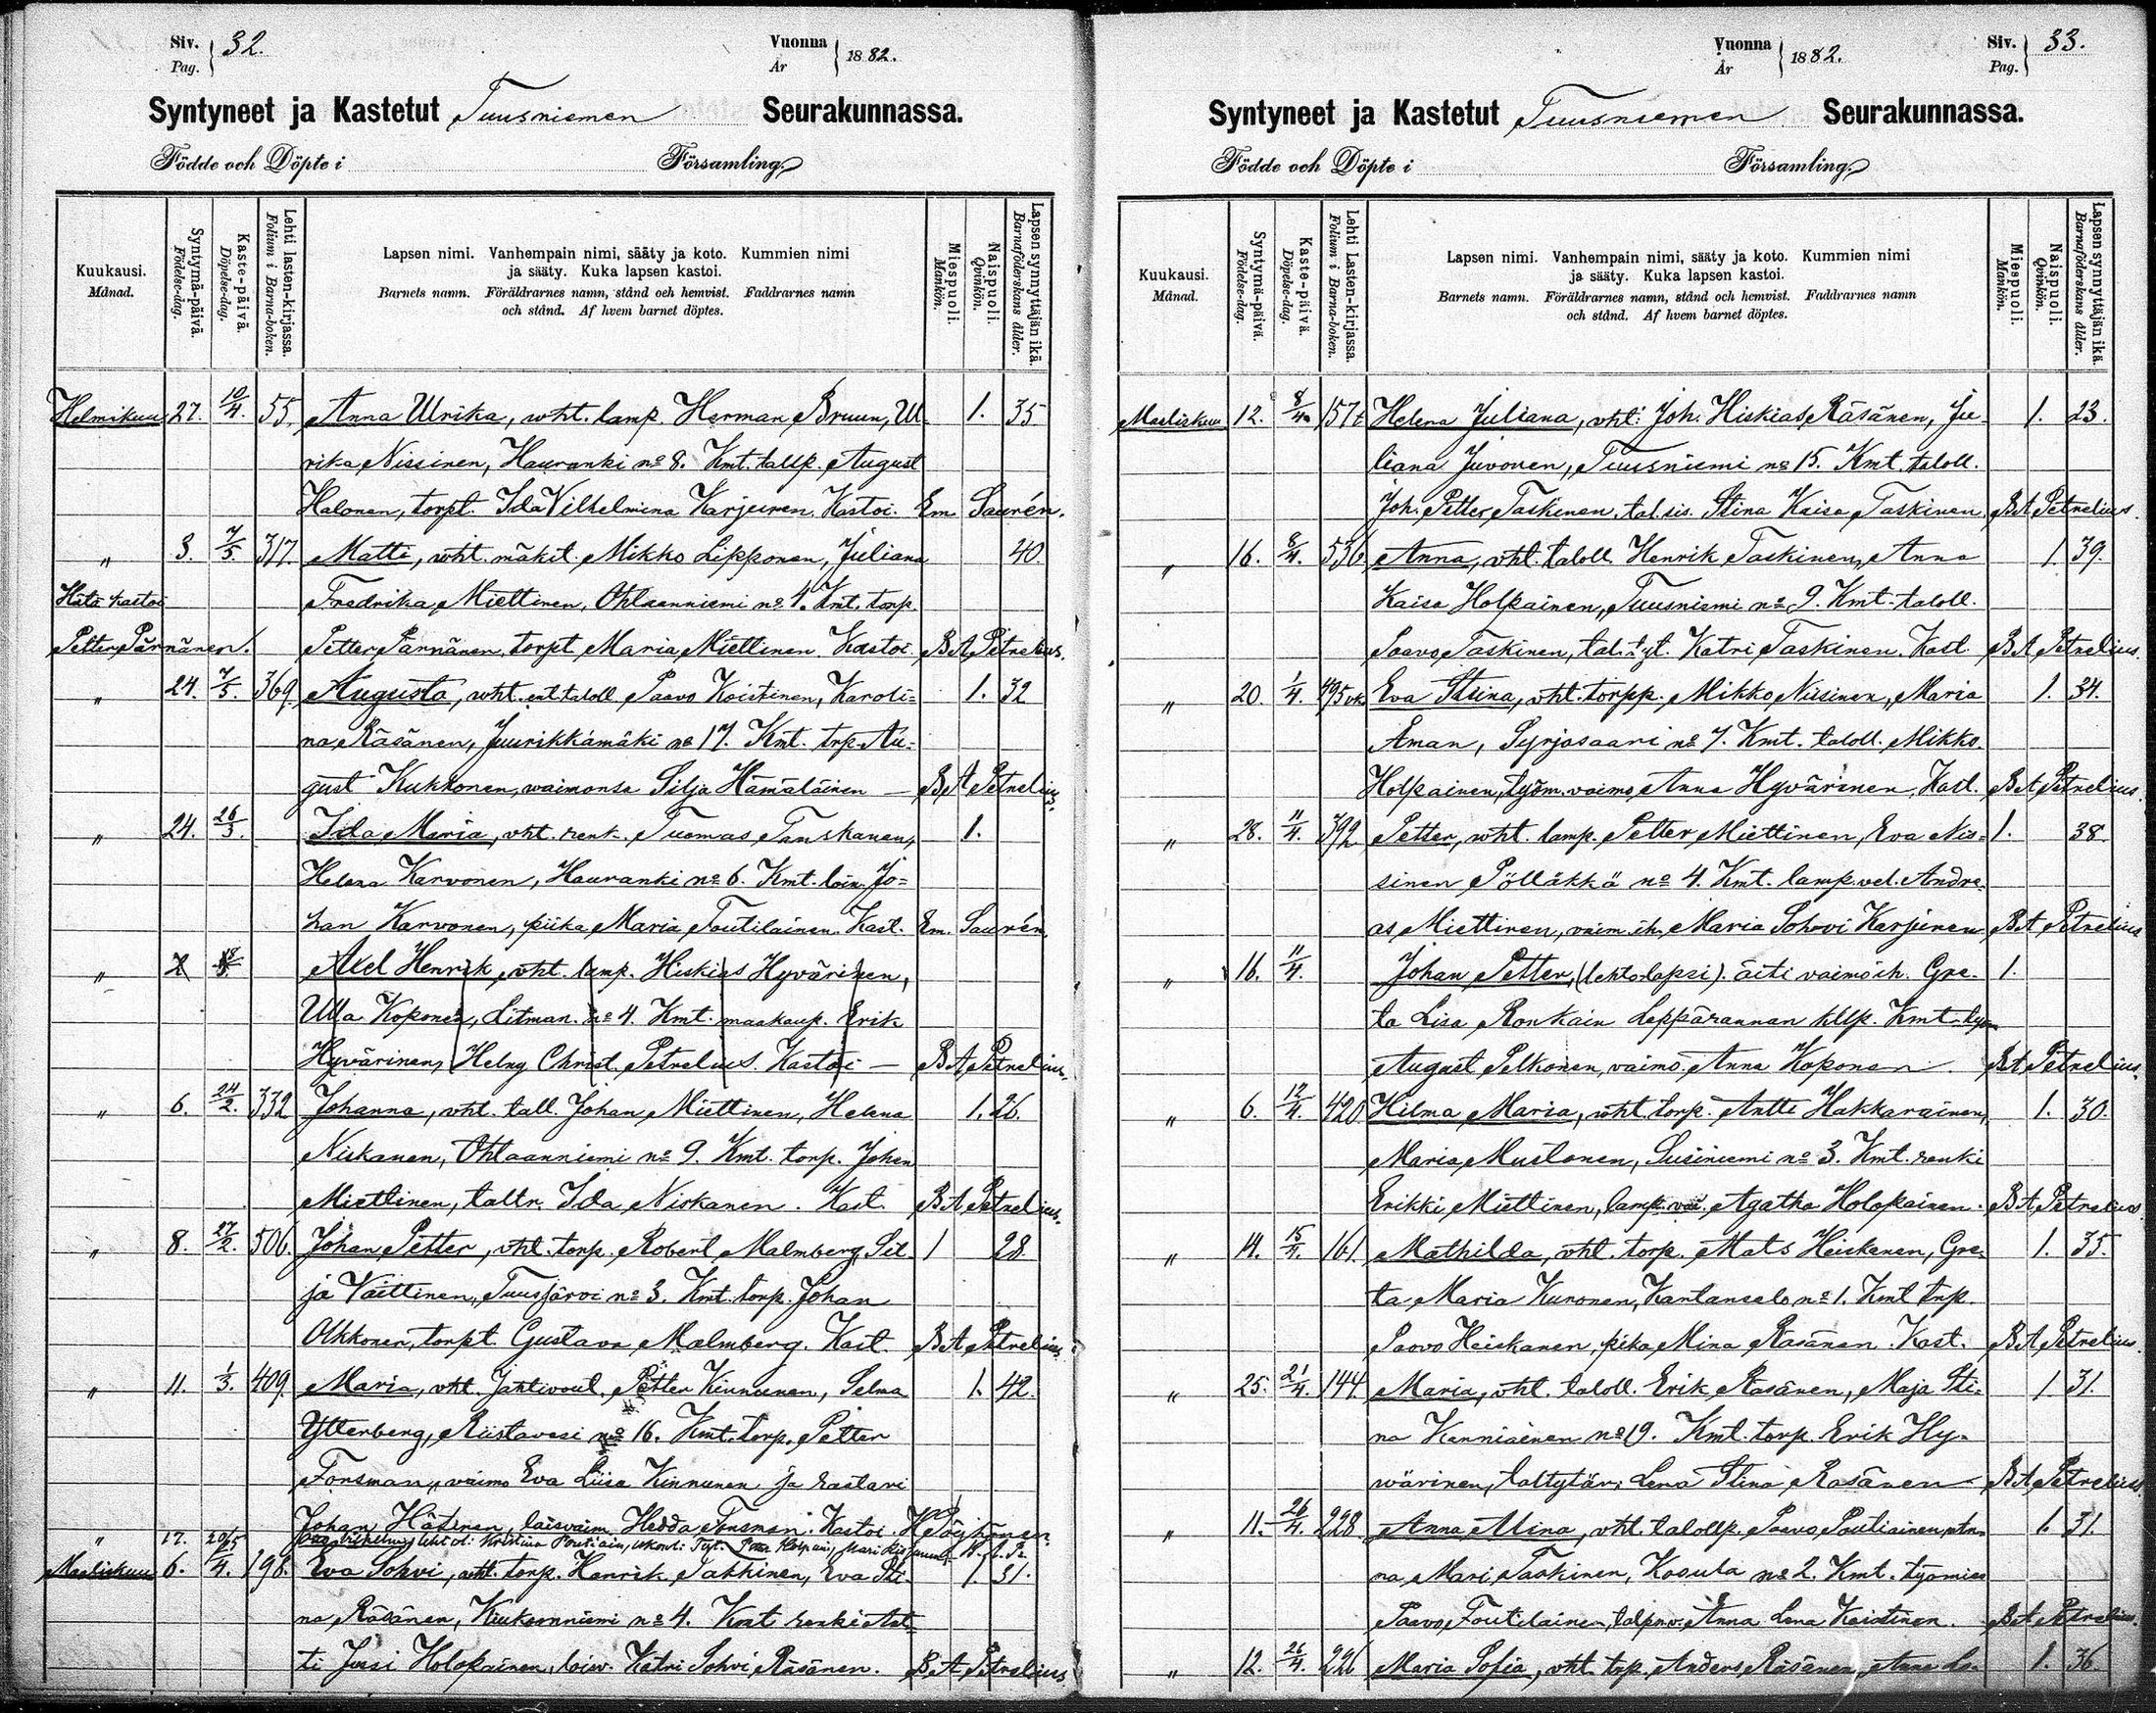 Siv. Pag. } 32. Vuonna År } 1882.
Syntyneet ja Kastetut Tuusniemen Seurakunnassa.
Födde och Döpte i Församling.
Kuukausi. Månad.
Syntymä-päivä. Födelse-dag.
Kaste-päivä. Döpelse-dag.
Lehti lasten-kirjassa. Folium i Barna-boken.
Lapsen nimi. Vanhempain nimi, sääty ja koto. Kummien nimi
ja sääty. Kuka lapsen kastoi.
Barnets namn. Föräldrarnes namn, stånd och hemvist. Faddrarnes namn
och stånd. Af hvem barnet döptes.
Miespuoli. Mankön.
Naispuoli. Qvinkön.
Lapsen synnyttäjän ikä. Barnaföderskans ålder.
Helmikuu 27. 10/4. 55. Anna Ulrika, vht. lamp. Herman Bruun, Ul- 1. 35.
rika Nissinen, Hauranki no 8. Kmt. tallp. August
Halonen, torpt. Ida Vilhelmina Karjunen. Kastoi. Em Saurén.
" 3. 7/5. 317. Matti, vht. mäkit. Mikko Lipponen, Juliana 40.
Hätä kastoi Fredrika Miettinen, Ohtaanniemi no 4. Kmt. torp
Petter Pärnänen. Petter Pärnänen, torpt Maria Miettinen. Kastoi BA Petrelius.
" 24. 7/5. 369. Augusta, vht. ent taloll Paavo Koistinen, Karoli= 1. 32
na Räsänen, Juurikkamäki no 17. Kmt. trp. Au=
gust Kukkonen, waimonsa Silja Hämäläinen — BA Petrelius.
" 24. 26/3. Ida Maria, vht. renk. Tuomas Tanskanen, 1.
Helena Karvonen, Hauranki no 6. Kmt. loin. Jo=
han Karvonen, piika Maria Toutilainen. Kast. Em. Saurén.
" Axel Henrik, vht. lamp. Hiskias Hyvärinen,
Ulla Koponen, Litman. no 4. Kmt. maakaup. Erik
Hyvärinen, Helny Christ. Petrelius. Kastoi — BA Petrelius.
" 6. 24/2. 332 Johanna, vht. tall. Johan Miettinen, Helena 1. 26.
Niskanen, Ohtaanniemi no 9. Kmt. torp. Johan
Miettinen, taltr. Ida Niskanen. Kast. BA Petrelius.
" 8. 27/2. 506. Johan Petter, vht. torp. Robert Malmberg, Sil- 1 28
ja Väittinen, Tuusjärvi no 3. Kmt. torp. Johan
Olkkonen, torpt. Gustava Malmberg. Kast. BA Petrelius.
" 11. 1/3. 409. Maria, vht. Jahtivout. Petter Kinnunen, Selma 1. 42.
Ytterberg, Riistavesi no 16. Kmt. torp. Petter
Forsman, vaimo Eva Liisa Kinnunen ja rastari
Johan Hätinen, läisvaim Hedda Forsman. Kastoi. H Pöyhönen.
" 17. 20/5
Maaliskuu 6. /4. 198. Eva Sohvi, vht. torp. Henrik Takkinen, Eva Sti- 1. 31.
na Räsänen, Kiukoonniemi no 4. Kmt renki Ant=
ti Jusi Holopainen, loisv. Katri Sohvi Räsänen. BA Petrelius
Vuonna År } 1882. Siv. Pag. } 33.
Syntyneet ja Kastetut Tuusniemen Seurakunnassa.
Födde och Döpte i Församling.
Kuukausi. Månad.
Syntymä-päivä. Födelse-dag.
Kaste-päivä. Döpelse-dag.
Lehti Lasten-kirjassa. Folium i Barna-boken.
Lapsen nimi. Vanhempain nimi, sääty ja koto. Kummien nimi
ja sääty. Kuka lapsen kastoi.
Barnets namn. Föräldrarnes namn, stånd och hemvist. Faddrarnes namn
och stånd. Af hvem barnet döptes.
Miespuoli. Mankön.
Naispuoli. Qvinkön.
Lapsen synnyttäjän ikä. Barnaföderskans ålder.
Maaliskuu 12. 8/4 157 Helena Juliana, vht: Joh. Hiskias Räsänen, Ju- 1. 23.
liana Juvonen, Tuusniemi no 15. Kmt. taloll.
Joh. Petter Taskinen, tal. sis. Stina Kaisa Taskinen. BA Petrelius.
" 16. 8/4. 536. Anna, vht. taloll. Henrik Taskinen, Anna 1. 39.
Kaisa Holpainen, Tuusniemi no 9. Kmt. taloll.
Paavo Taskinen, tal. tyt. Katri Taskinen. Kast. BA Petrelius.
" 20. 1/4. 495 Eva Stiina, vht. torpp. Mikko Niisinen, Maria 1. 34.
Aman, Syrjäsaari no 7. Kmt. taloll. Mikko
Holpainen, työm. vaimo Anna Hyvärinen, Kast. BA Petrelius.
" 28. 11/4. 392 Petter, vht. lamp. Petter Miettinen, Eva Nis= 1. 38.
sinen Pölläkkä no 4. Kmt. lamp. vel. Andre-
as Miettinen, vaim. ih. Maria Sohvi Karjunen BA Petrelius
" 16. 11/4. Johan Petter, (lehto-lapsi). äiti vaimo ih. Gre- 1.
ta Lisa Ronkain Leppärannan kllp. Kmt.
August Pelkonen, vaimo Anna Koponen. BA Petrelius.
" 6. 12/4. 420. Hilma Maria, vht. torp. Antti Hakkarainen, 1. 30.
Maria Mustonen, Susiniemi no 3. Kmt. renki
Erikki Miettinen, lamp. vai. Agatha Holopainen. BA Petrelius
" 14. 15/4. 161. Mathilda, vht. torp. Mats Heiskanen, Gre- 1. 35.
ta Maria Kuronen, Kantanselo no 1. Kmt trp.
Paavo Heiskanen, piika Mina Räsänen. Kast. BA Petrelius.
" 25. 21/4. 144 Maria, vht. taloll. Erik Räsänen, Maja Sti- 1 31.
na Kanniainen no 19. Kmt. torp. Erik Hy-
wärinen, taltytär. Lena Stina Räsänen — BA Petrelius
" 11. 26/4. 228. Anna Miina, vht. talollp. Paavo Poutiainen, 1. 31.
na Mari Taskinen, Kosula no 2. Kmt. työmies
Paavo Toutilainen, Anna Lena Koistinen. BA Petrelius.
" 12. 26/4. 226 Maria Sofia, vht. trp. Anders Räsänen, Anna Lo- 1. 36.